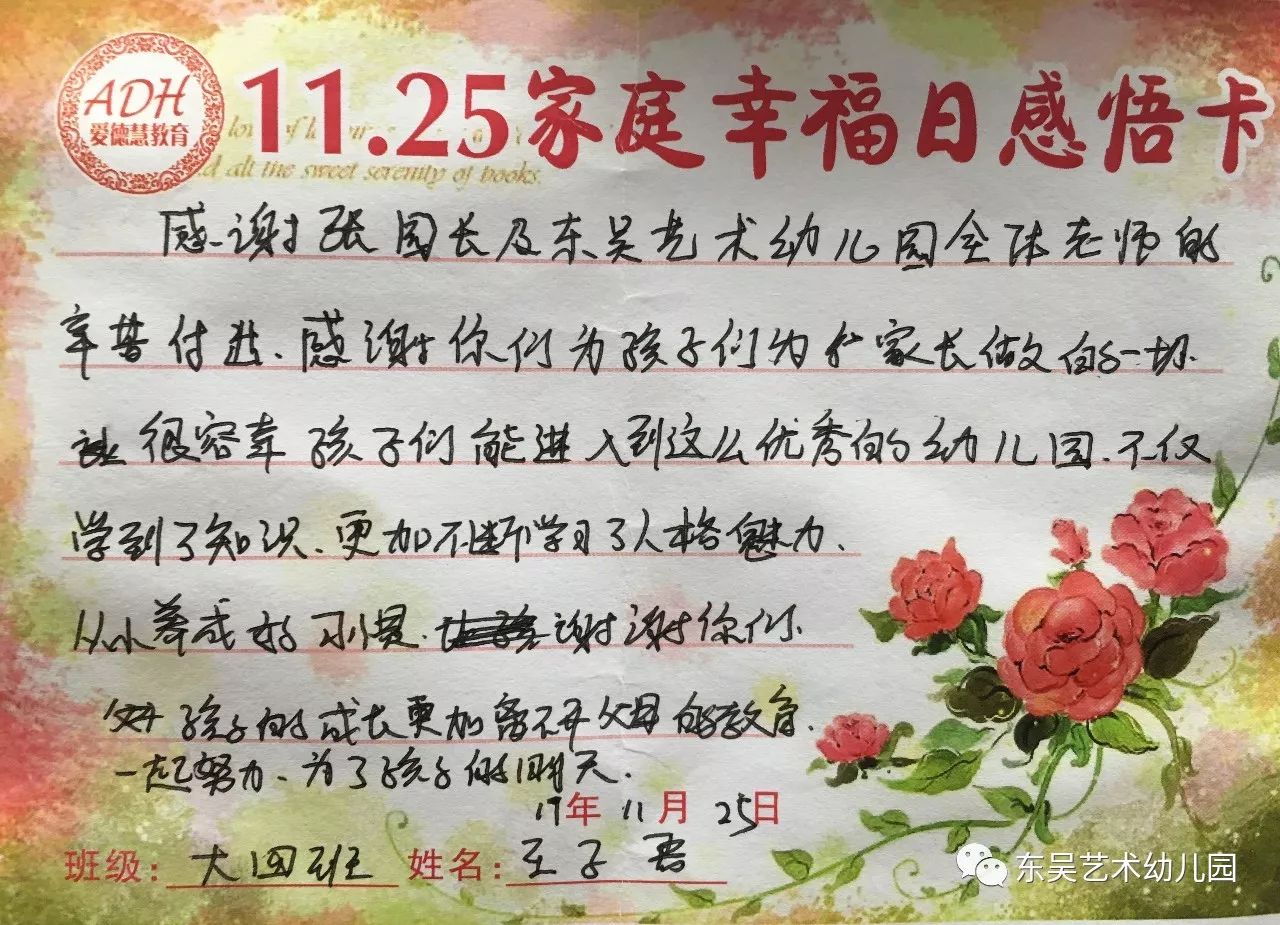 ADH
爱德慧教育
11.25家庭幸福日感悟卡
and all the sweet serenity of books.
感谢张园长及东吴艺术幼儿园全体老师的
辛苦付出、感谢你们为孩子们为个家长做的一切.
很容幸孩子们能进入到这么优秀的幼儿园.不仅
学到了知识、更加不断学习了人格魅力、
从小养成好的习惯.谢谢你们.
孩子的成长更加离不开父母的教育.
一起努力、为了孩子的明天.
17年 11月 25日
班级：大四班 姓名：王子
东吴艺术幼儿园